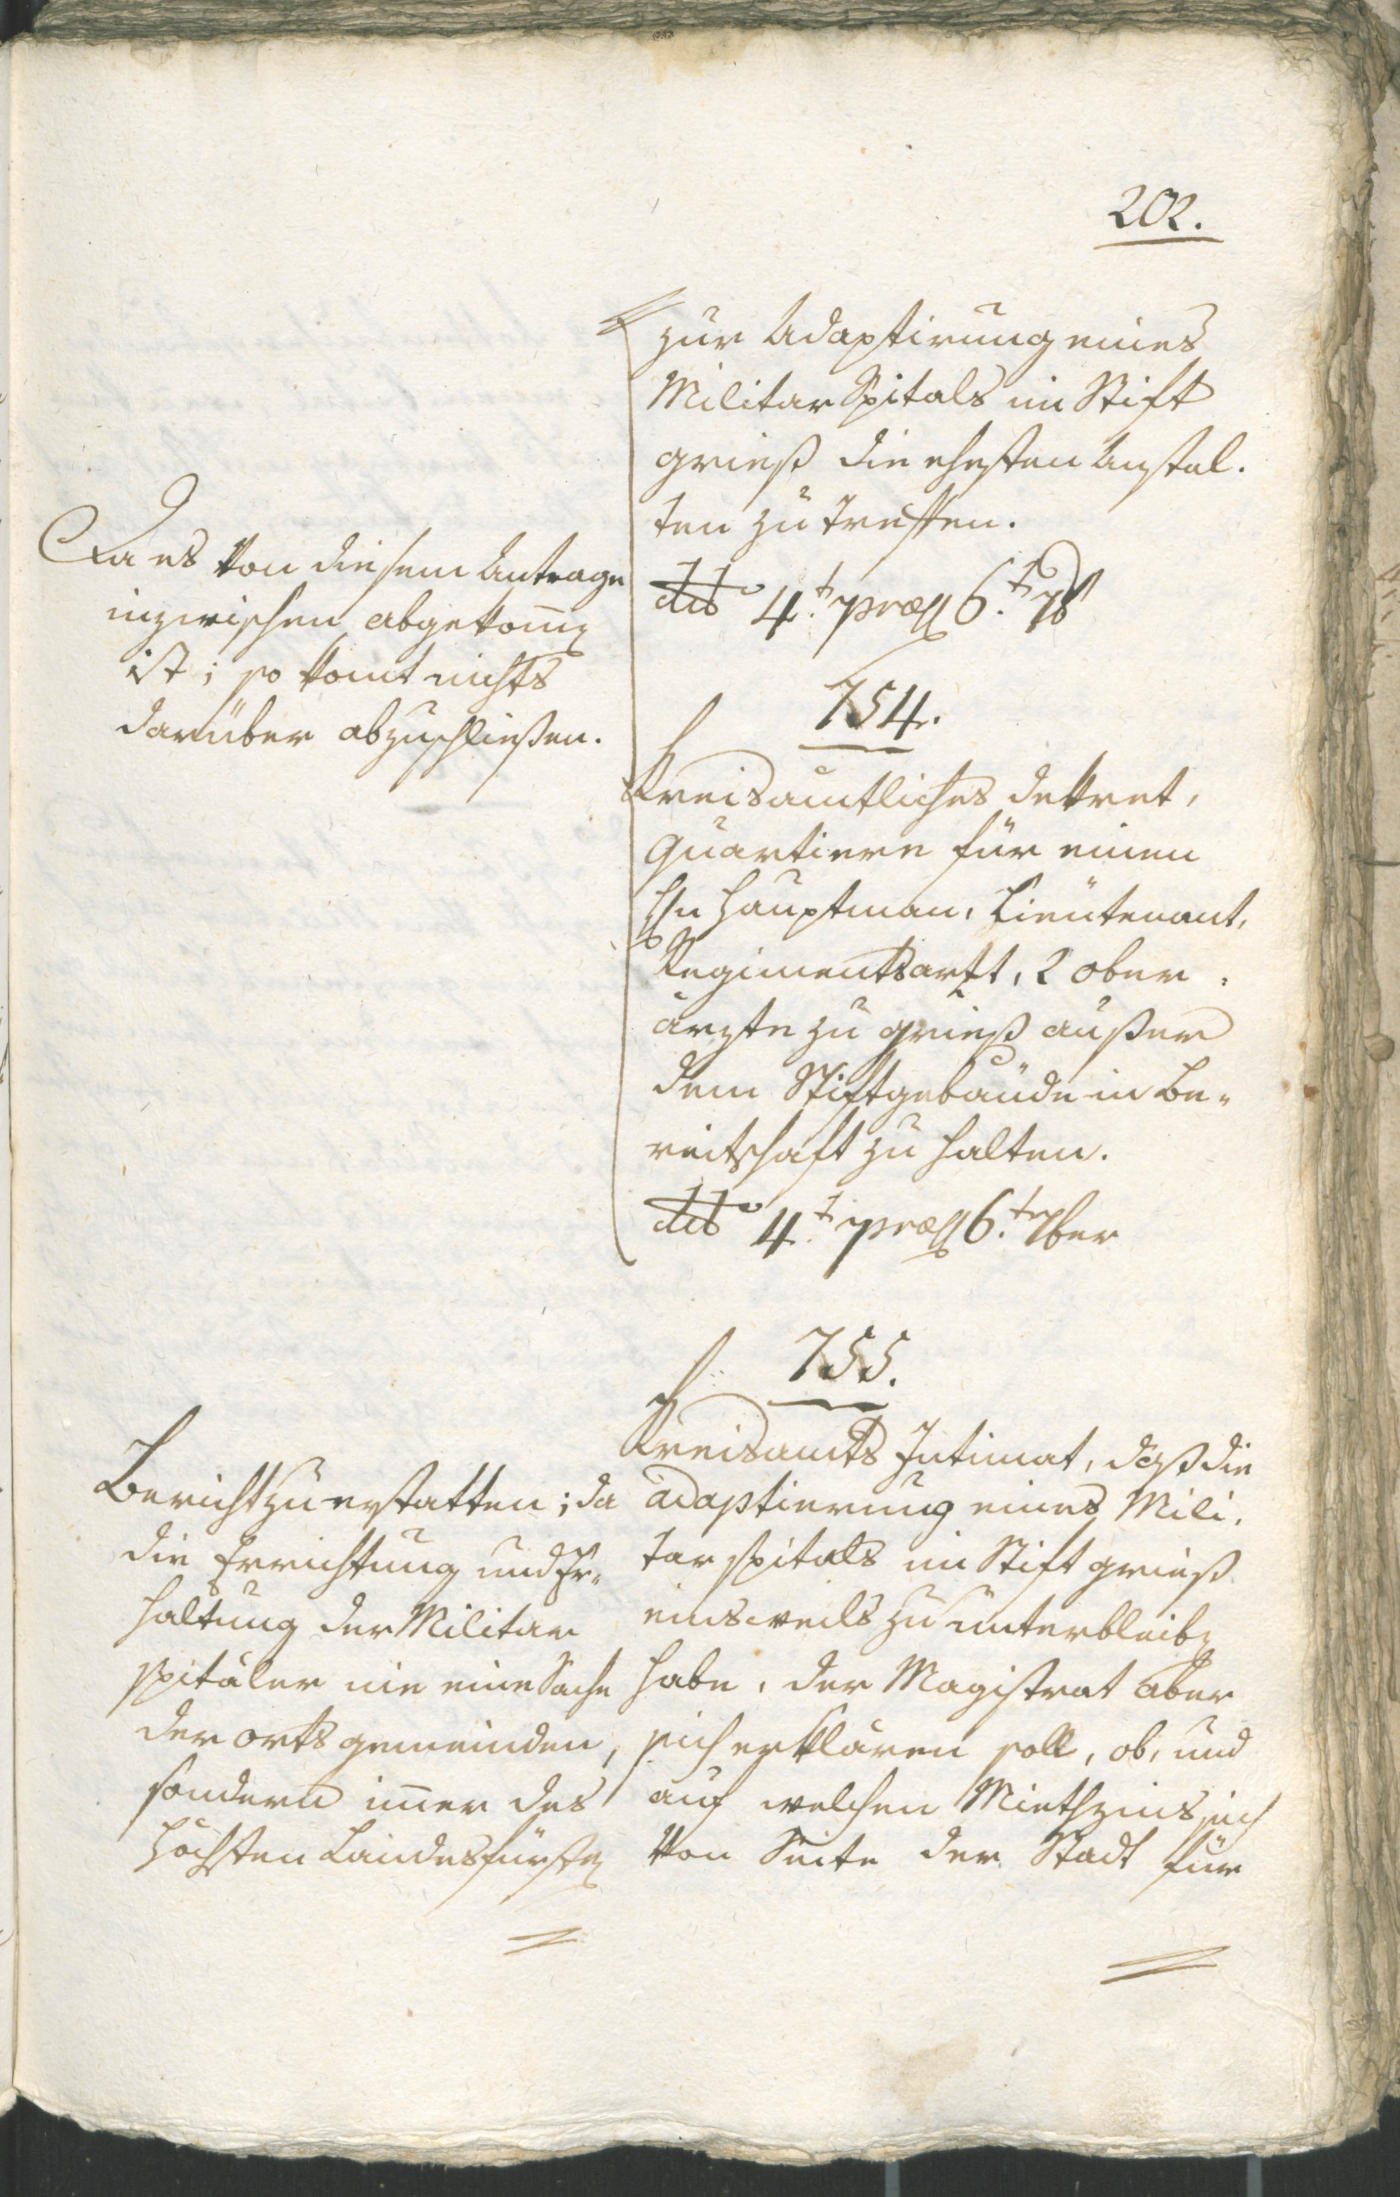 202.
zur Adaptirung eines
Militar Spitals im Stift
grieß die ehesten Anstal.
ten zu treffen.
dto 4t. præs 6t. 7b
Da es von diesem Antrage
inzwischen abgekomẽ
ist; so komt nichts
darüber abzuschließen.
754.
Kreisamtliches dekret,
Quartiere für einen
Hn Hauptman, Lieutenant,
Regimentsarzt, 2 ober-
ärzte zu grieß außer
dem Stiftgebäude in be-
reitschaft zu halten.
dto 4t. præs 6t. 7ber
755.
Kreisamts Intimat, daß die
adaptierung eines Mili-
tar spitals im Stift grieß
einsweils zu unterbleibẽ
habe, der Magistrat aber
sich erklären soll, ob, und
auf welchen Miethzins sich
von Seite der Stadt für
Bericht zu erstatten; da
die Errichtung und Er-
haltung der Militar
spitäler nie eine Sache
der orts gemeinden,
sondern im̃er des
höchsten Landesfürstẽ